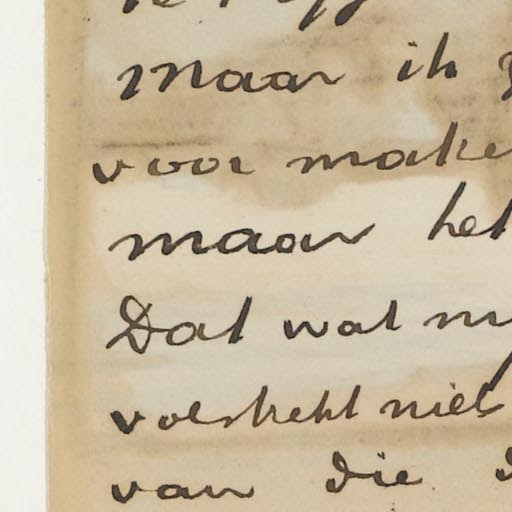 maar ik
voor make
maar het
Dat wat my
volstrekt niet
van die